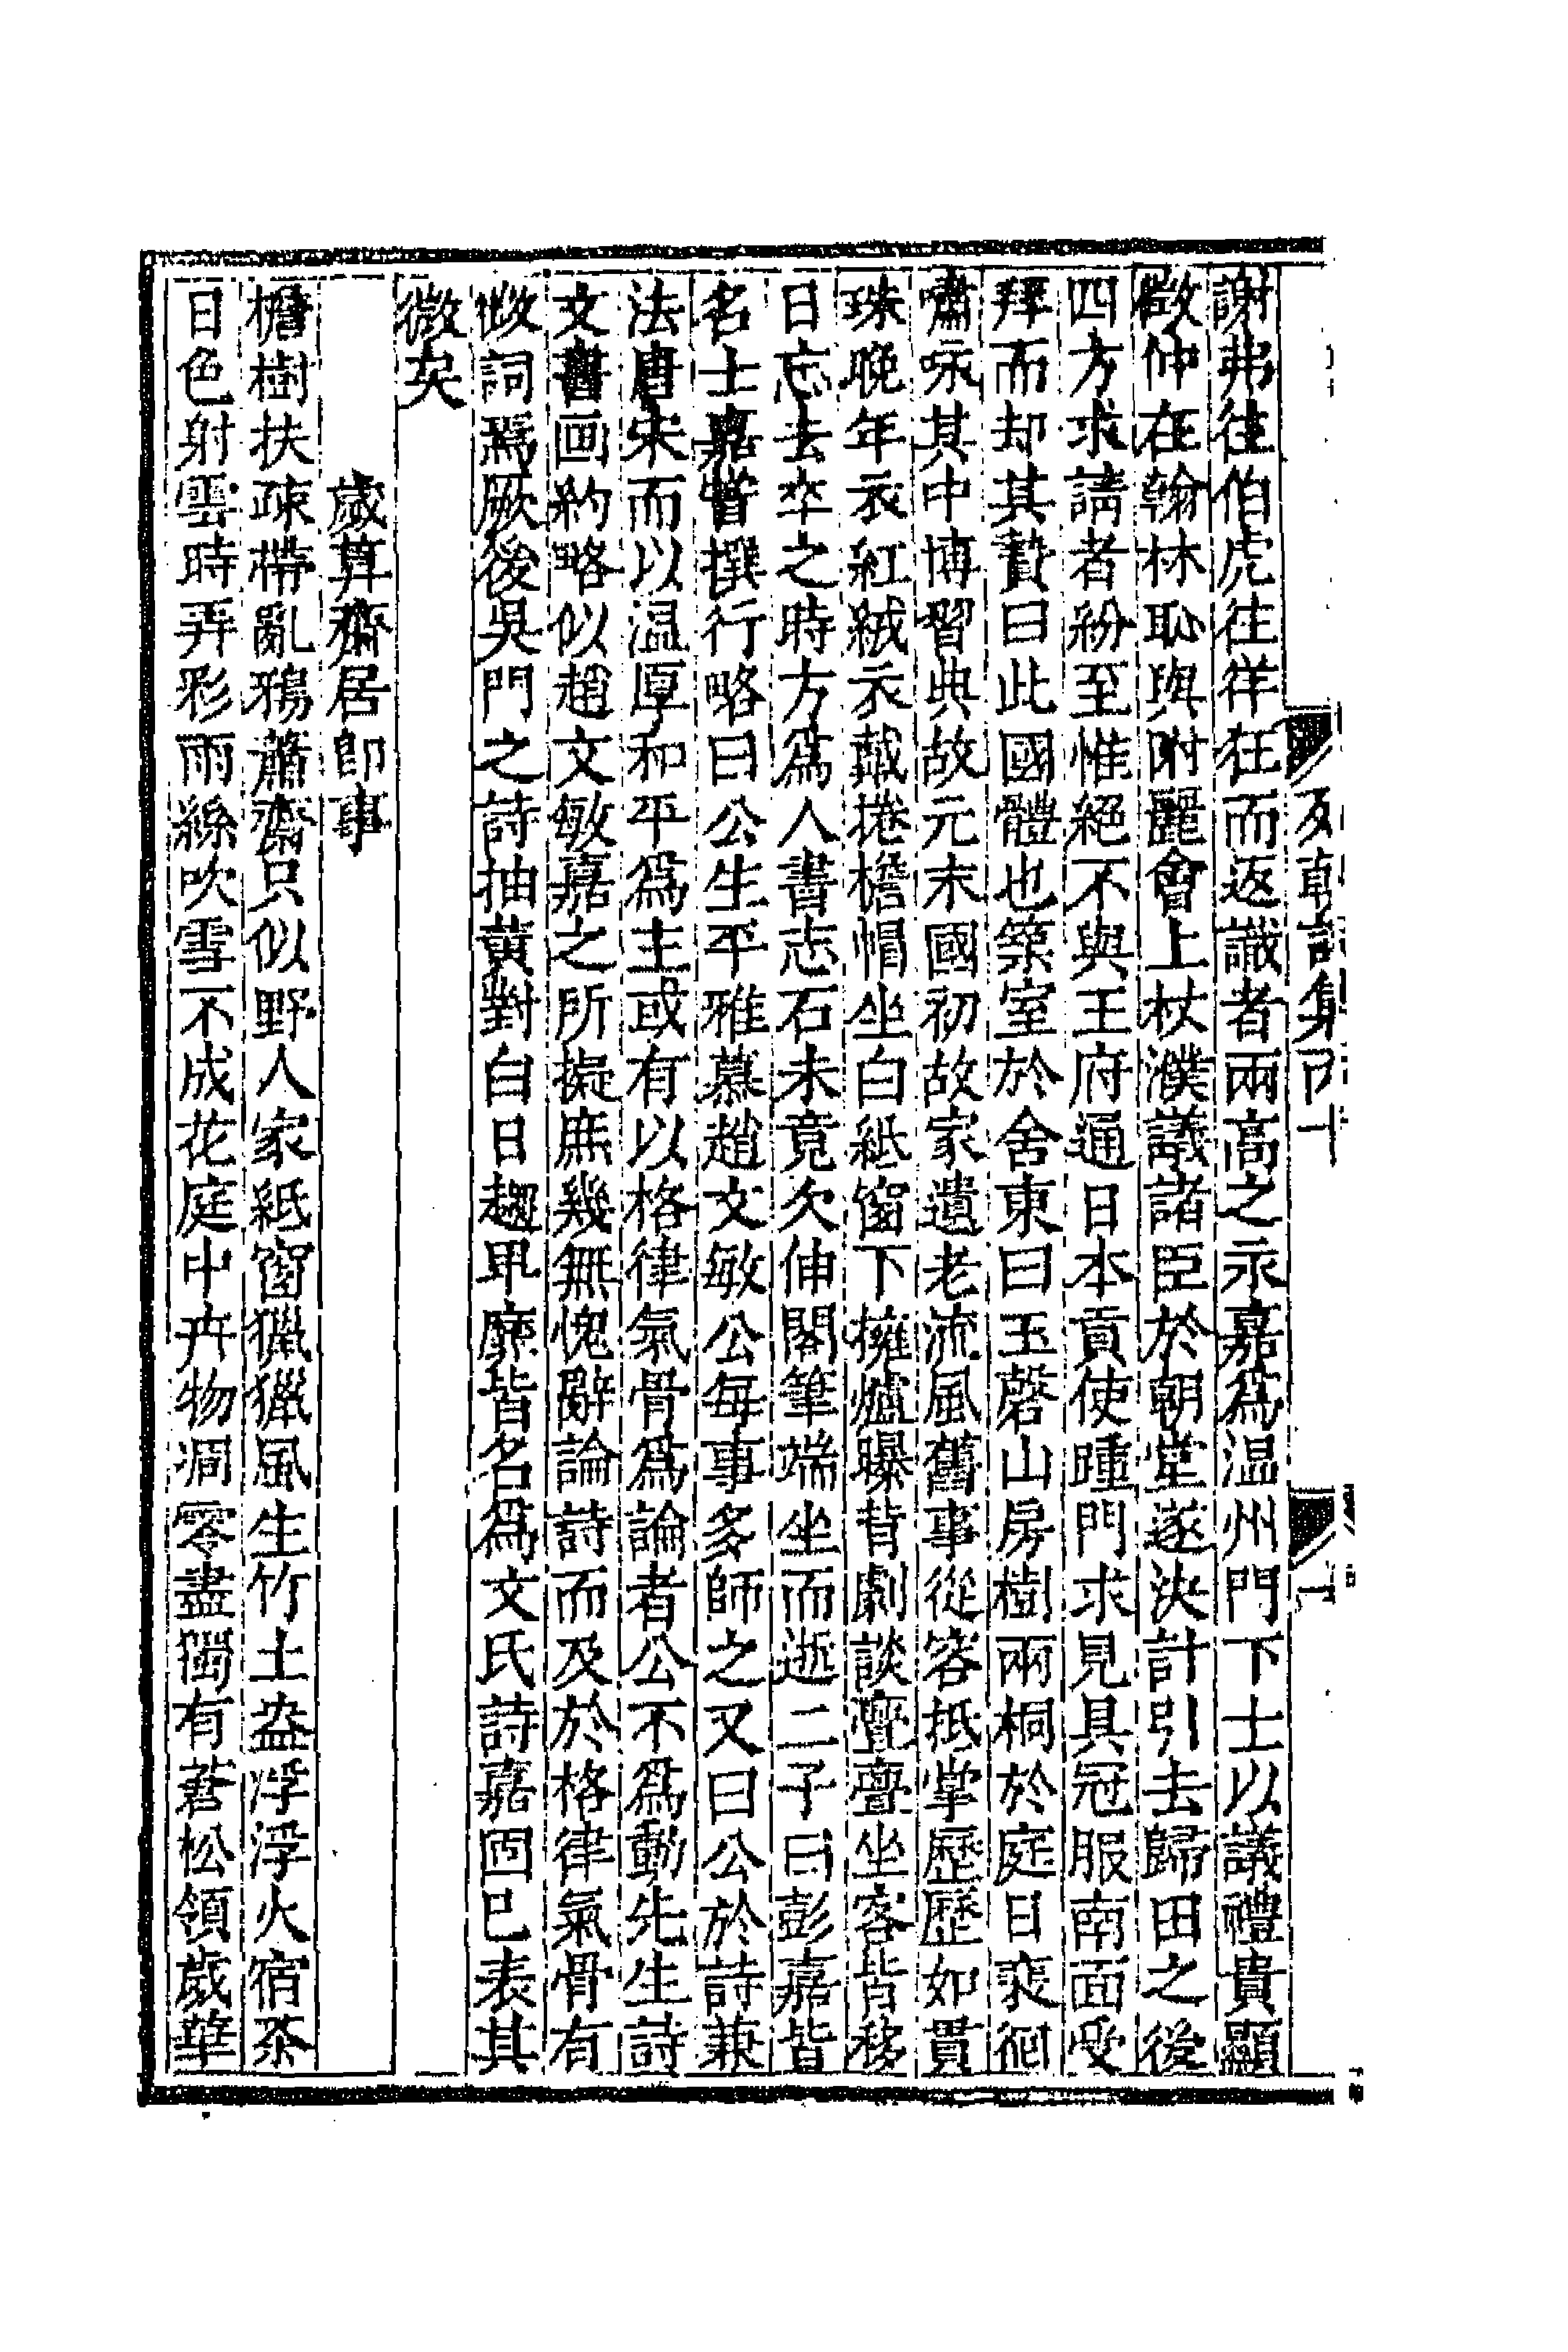 列朝詩集丙十
一
謝弗往伯虎徃徉狂而返識者兩高之永嘉爲温州門下士以議禮貴顯
徵仲在翰林恥與附麗會上杖濮議諸臣於朝堂遂決計引去歸田之後
四方求請者紛至惟絕不與王府通日本貢使踵門求見具冠服南面受
拜而却其贄曰此國體也築室於舍東曰玉磬山房樹兩桐於庭日裴徊
嘯咏其中博習典故元末國初故家遺老流風舊事從容抵掌歷歷如貫
珠晩年衣紅絨衣戴捲檐帽坐白紙窗下擁爐曝背劇談亹亹坐客皆移
日忘去卒之時方爲人書志石未竟欠伸閣筆端坐而逝二子曰彭嘉皆
名士嘉嘗撰行略曰公生平雅慕趙文敏公每事多師之又曰公於詩兼
法唐宋而以温厚和平爲主或有以格律氣骨爲論者公不爲動先生詩
文書画約略似趙文敏嘉之所擬庶幾無愧辭論詩而及於格律氣骨有
微詞焉厥後吳門之詩抽黃對白日趨卑靡皆名爲文氏詩嘉固已表其
微矣
歲暮齋居卽事
檐樹扶疎帶亂鴉蕭齋只似野人家紙窗獵獵風生竹土盎浮浮火宿茶
日色射雲時弄彩雨絲吹雪不成花庭中卉物凋零盡獨有蒼松領歲華